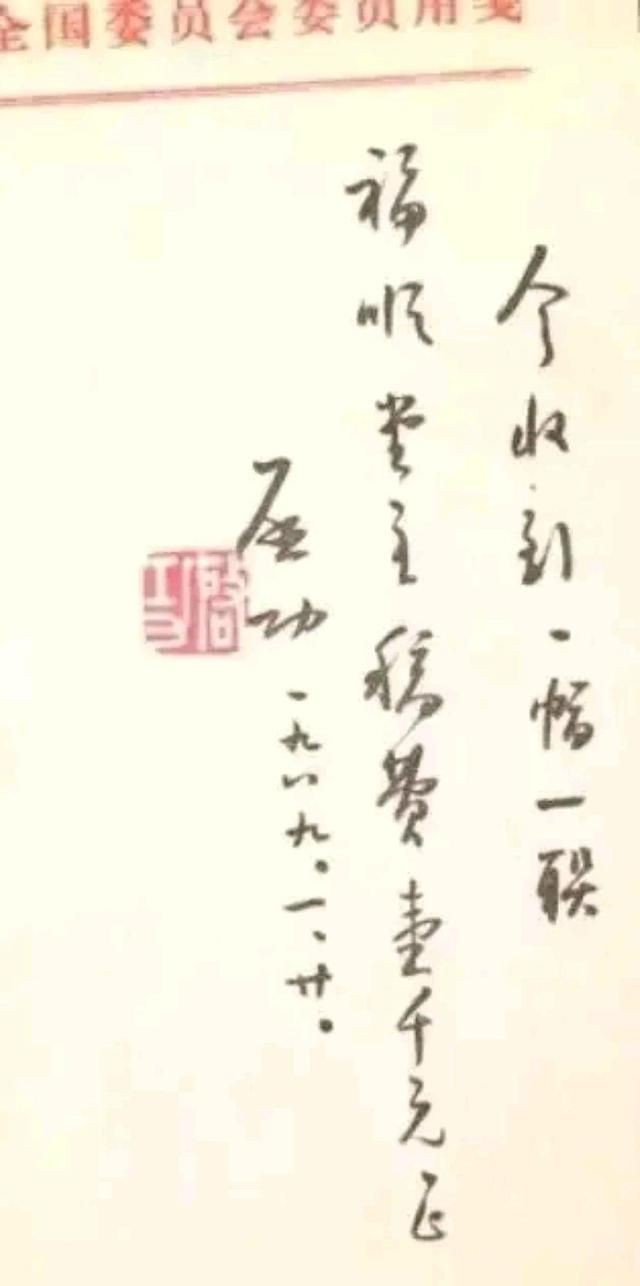 全国委员会委员用笺
今收到一幅一联
福顺堂主稿费壹千元正
启功 一九八九.一、廿.
启功